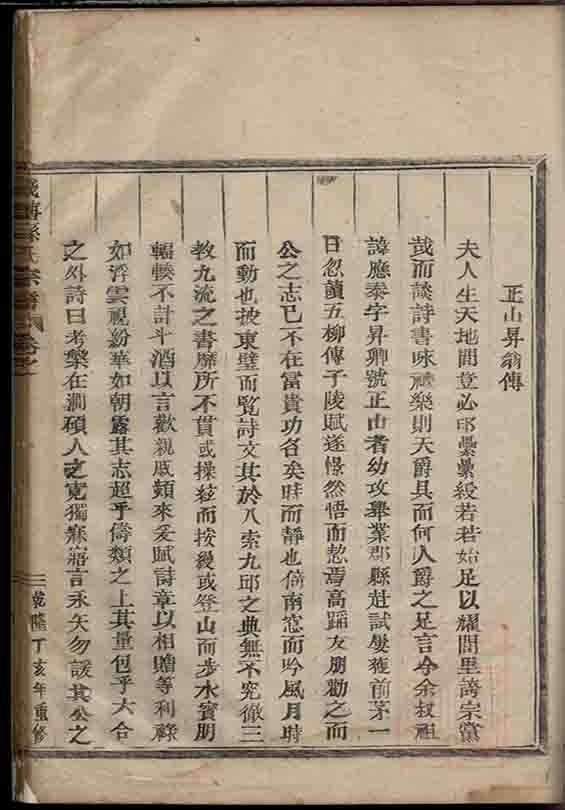 正山昇翁傳
夫人生天地間豈必印纍纍綬若若始足以耀閭里誇宗黨
哉而談詩書味禮樂則天爵具而何人爵之足言今余叔祖
諱應泰字昇卿號正山者幼攻舉業郡縣赴試屢獲前茅一
日忽讀五柳傳子陵賦遂愀然悟而愁焉高蹈友朋勸之而
公之志已不在富貴功名矣時而靜也倚南窓而吟風月時
而動也披東璧而覧詩文其於八索九邱之典無不究徹三
教九流之書靡所不貫或操絃而按縵或登山而步水賓朋
輻輳不計斗酒以言歡親戚頻來爰賦詩章以相贈等利祿
如浮雲視紛華如朝露其志超乎儔類之上其量包乎六合
之外詩曰考槃在澗碩人之寬獨寐寤言永矢勿諼其公之
孫氏宗譜 卷之一
乾隆丁亥年重修